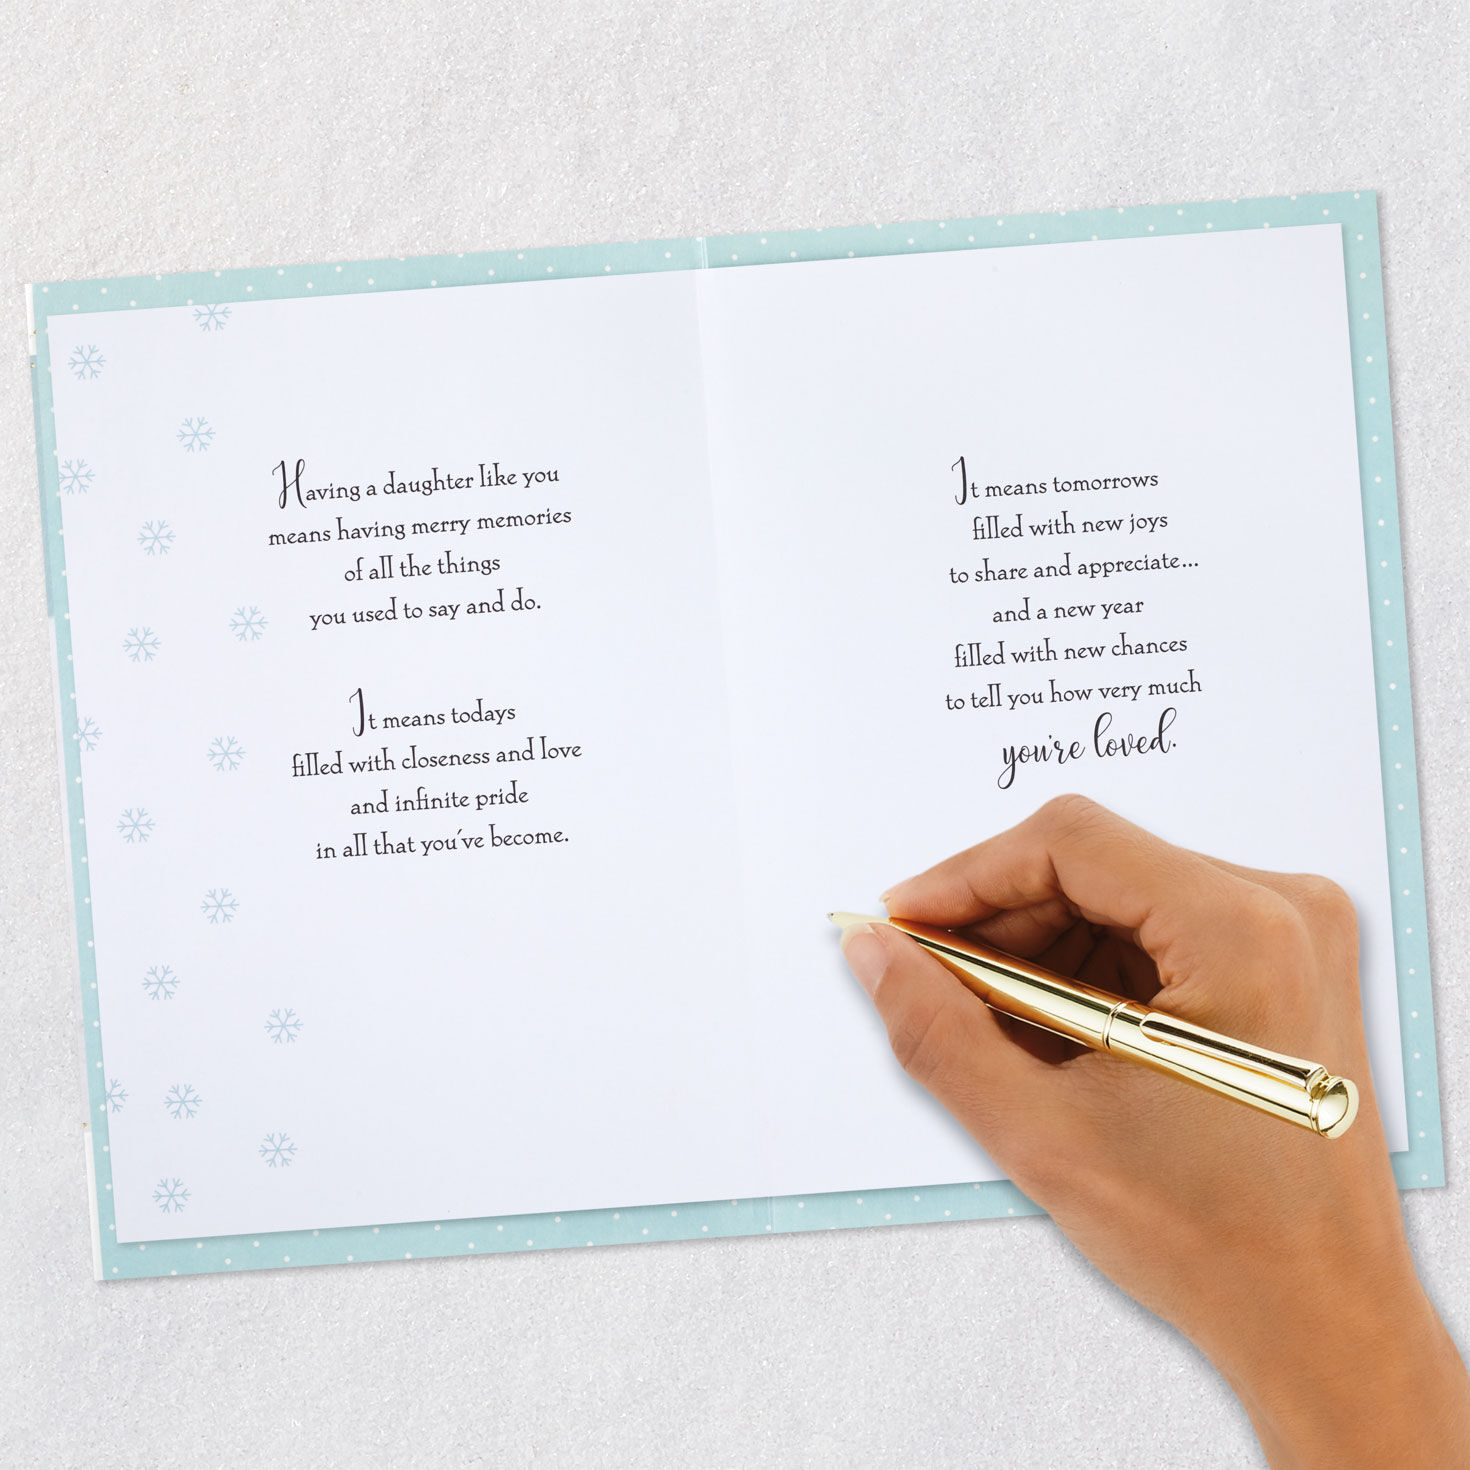 Having a daughter like you
means having merry memories
of all the things
you used to say and do.
It means todays
filled with closeness and love
and infinite pride
in all that you've become.
It means tomorrows
filled with new joys
to share and appreciate...
and a new year
filled with new chances
to tell you how very much
you're loved.